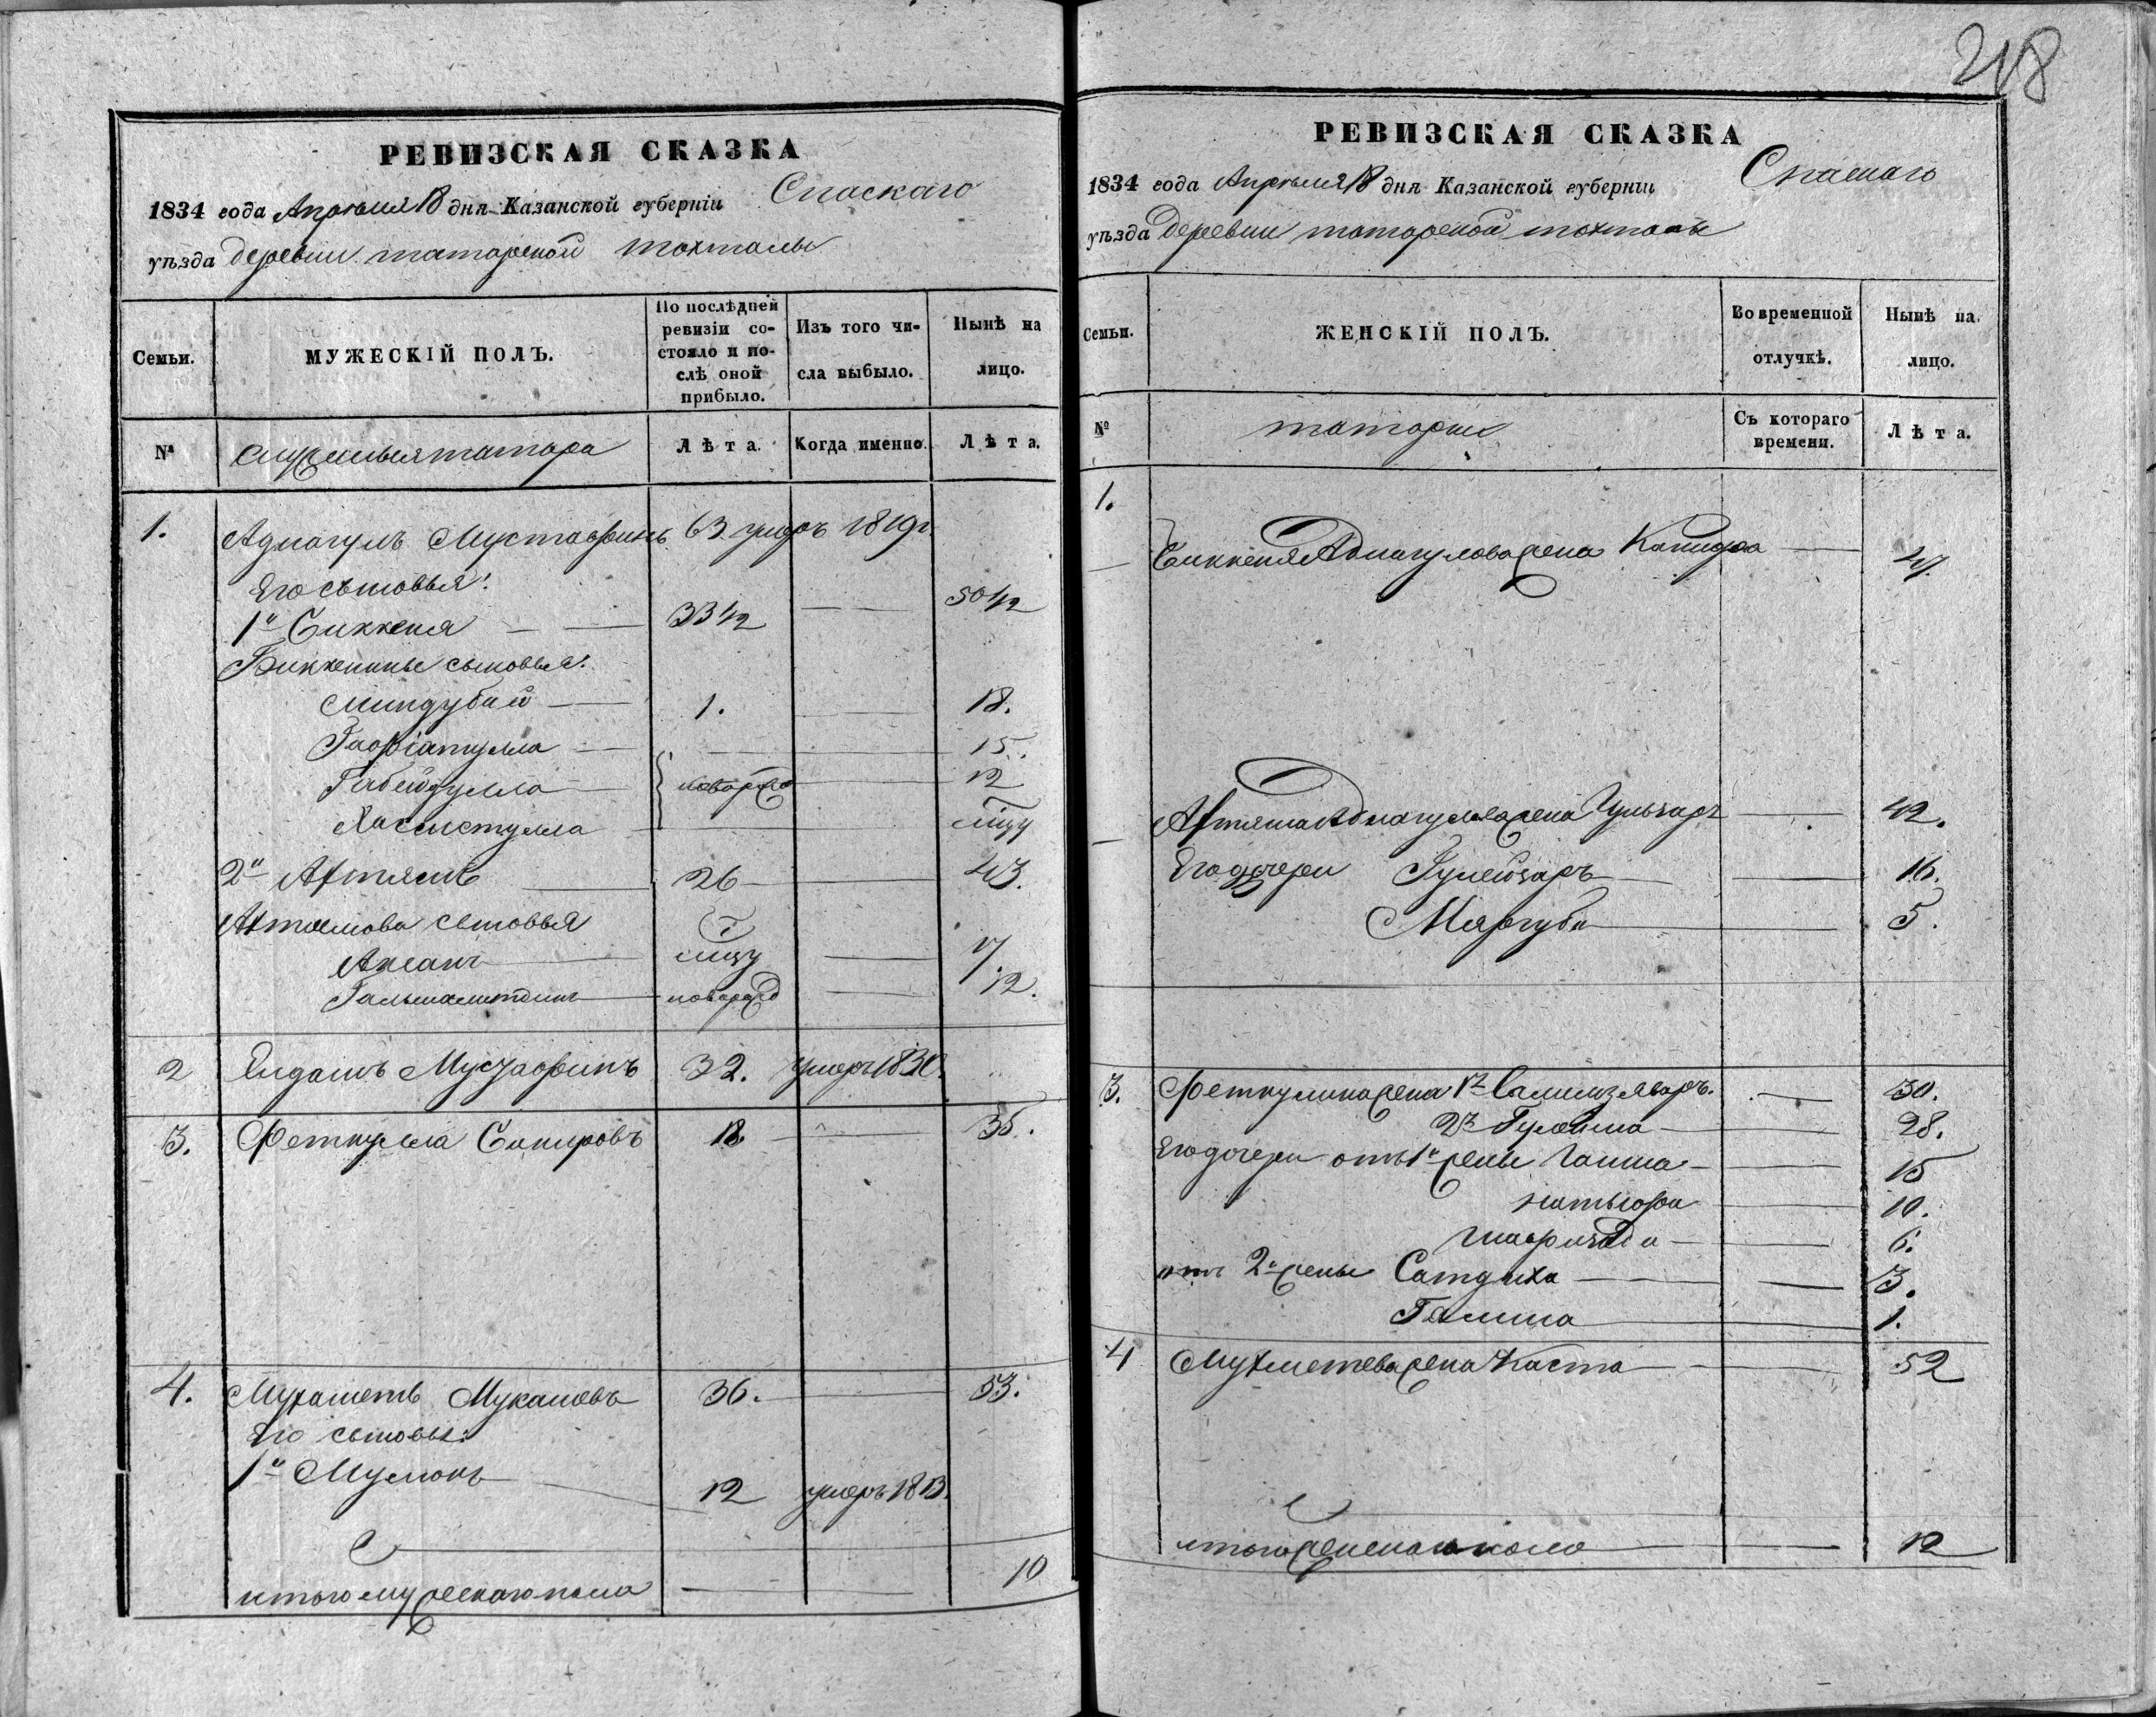 218
РЕВИЗСКАЯ СКАЗКА
1834 года Апреля 18 дня Казанской губерніи Спаскаго
уѣзда деревни татарской тохталы
Семьи.
МУЖЕСКІЙ ПОЛЪ.
По послѣдней ревизіи состояло и послѣ оной прибыло.
Изъ того числа выбыло.
Нынѣ на лицо.
№ татара Лѣта. Когда именно. Лѣта.
1. Аднагулъ Мустафинъ 63 умеръ 1819г.
Его сыновья:
1й Биккеня 33 1/2 50 1/2
Биккенины сыновья:
Миндубай 1. 18.
Гафіатулла 15.
Габейдулла новорож 12
Хасметулла
2й Ахтямъ 26 43.
Ахтямова сыновья
Ахсанъ 17
новорожд 12.
2 Юлдашъ Мустафинъ 32. умеръ 1830.
3. Феткулла Бакировъ 18 35.
4. Мухаметъ Мукашевъ 36. 53.
Его сыновья:
1й Муслюкъ 12 умеръ 1813.
итого мужескаго пола 10
РЕВИЗСКАЯ СКАЗКА
1834 года Апреля 18 дня Казанской губерніи Спаскаго
уѣзда Деревни татарской тохталы
Семьи.
ЖЕНСКІЙ ПОЛЪ.
Во временной отлучкѣ.
Нынѣ на лицо.
№ татарки Съ котораго времени. Лѣта.
1.
Биккеня Аднагулова жена 47.
Ахтяма Аднагулова жена Гульзаръ 42.
Его дочери Гулейзаръ 16.
Мяргуба 5.
3. Феткулина жена 1я 30.
2я 28.
Его дочери отъ 1й жены 15
10.
6.
отъ 2й жены Сатдыха 3.
Галима 1.
4 Мухаметева жена 52
итого женскаго пола 12